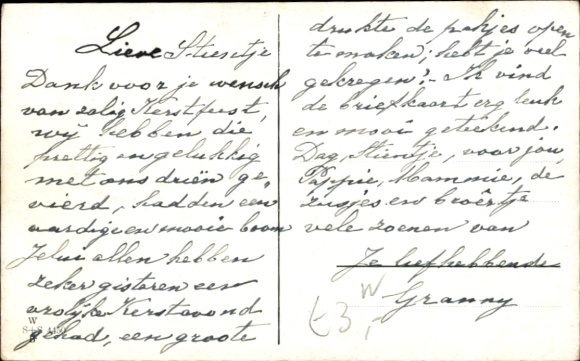 Lieve Stientje
Dank voor je wensch
van zalig Kerstfeest,
wij hebben die
prettig en gelukkig
met ons driën ge„
vierd, hadden een
aardig en mooie boom
Jelui allen hebben
zeker gisteren een
vrolijke Kerstavond
gehad, een groote
drukte de pakjes open
te maken; hebt je veel
gekregen? Ik vind
de briefkaart erg leuk
en mooi geteekend.
Dag, Stientje, voor jou,
Pappie, Mammie, de
zusjes en broêrtje
vele zoenen van
Je liefhebbende
Granny
W
€3,-
W
S+S 1450
B